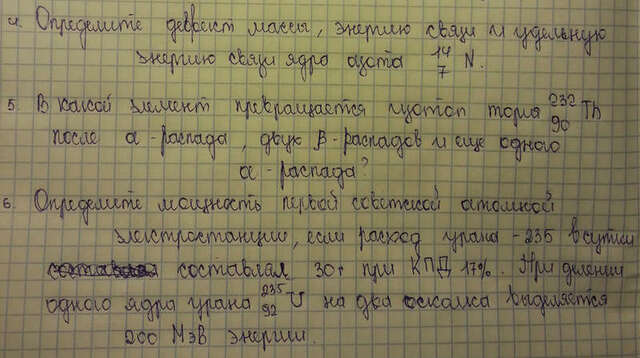 4. Определите дефект массы, энергию связи и удельную
энергию связи ядра азота ¹⁴₇ N.
5. В какой элемент превращается изотоп тория ²³²₉₀ Th
после α - распада, двух β - распадов и еще одного
α - распада?
6. Определите мощность первой советской атомной
электростанции, если расход урана - 235 в сутки
составлял 30 г при КПД 17%. При делении
одного ядра урана ²³⁵₉₂ U на два осколка выделяется
200 МэВ энергии.